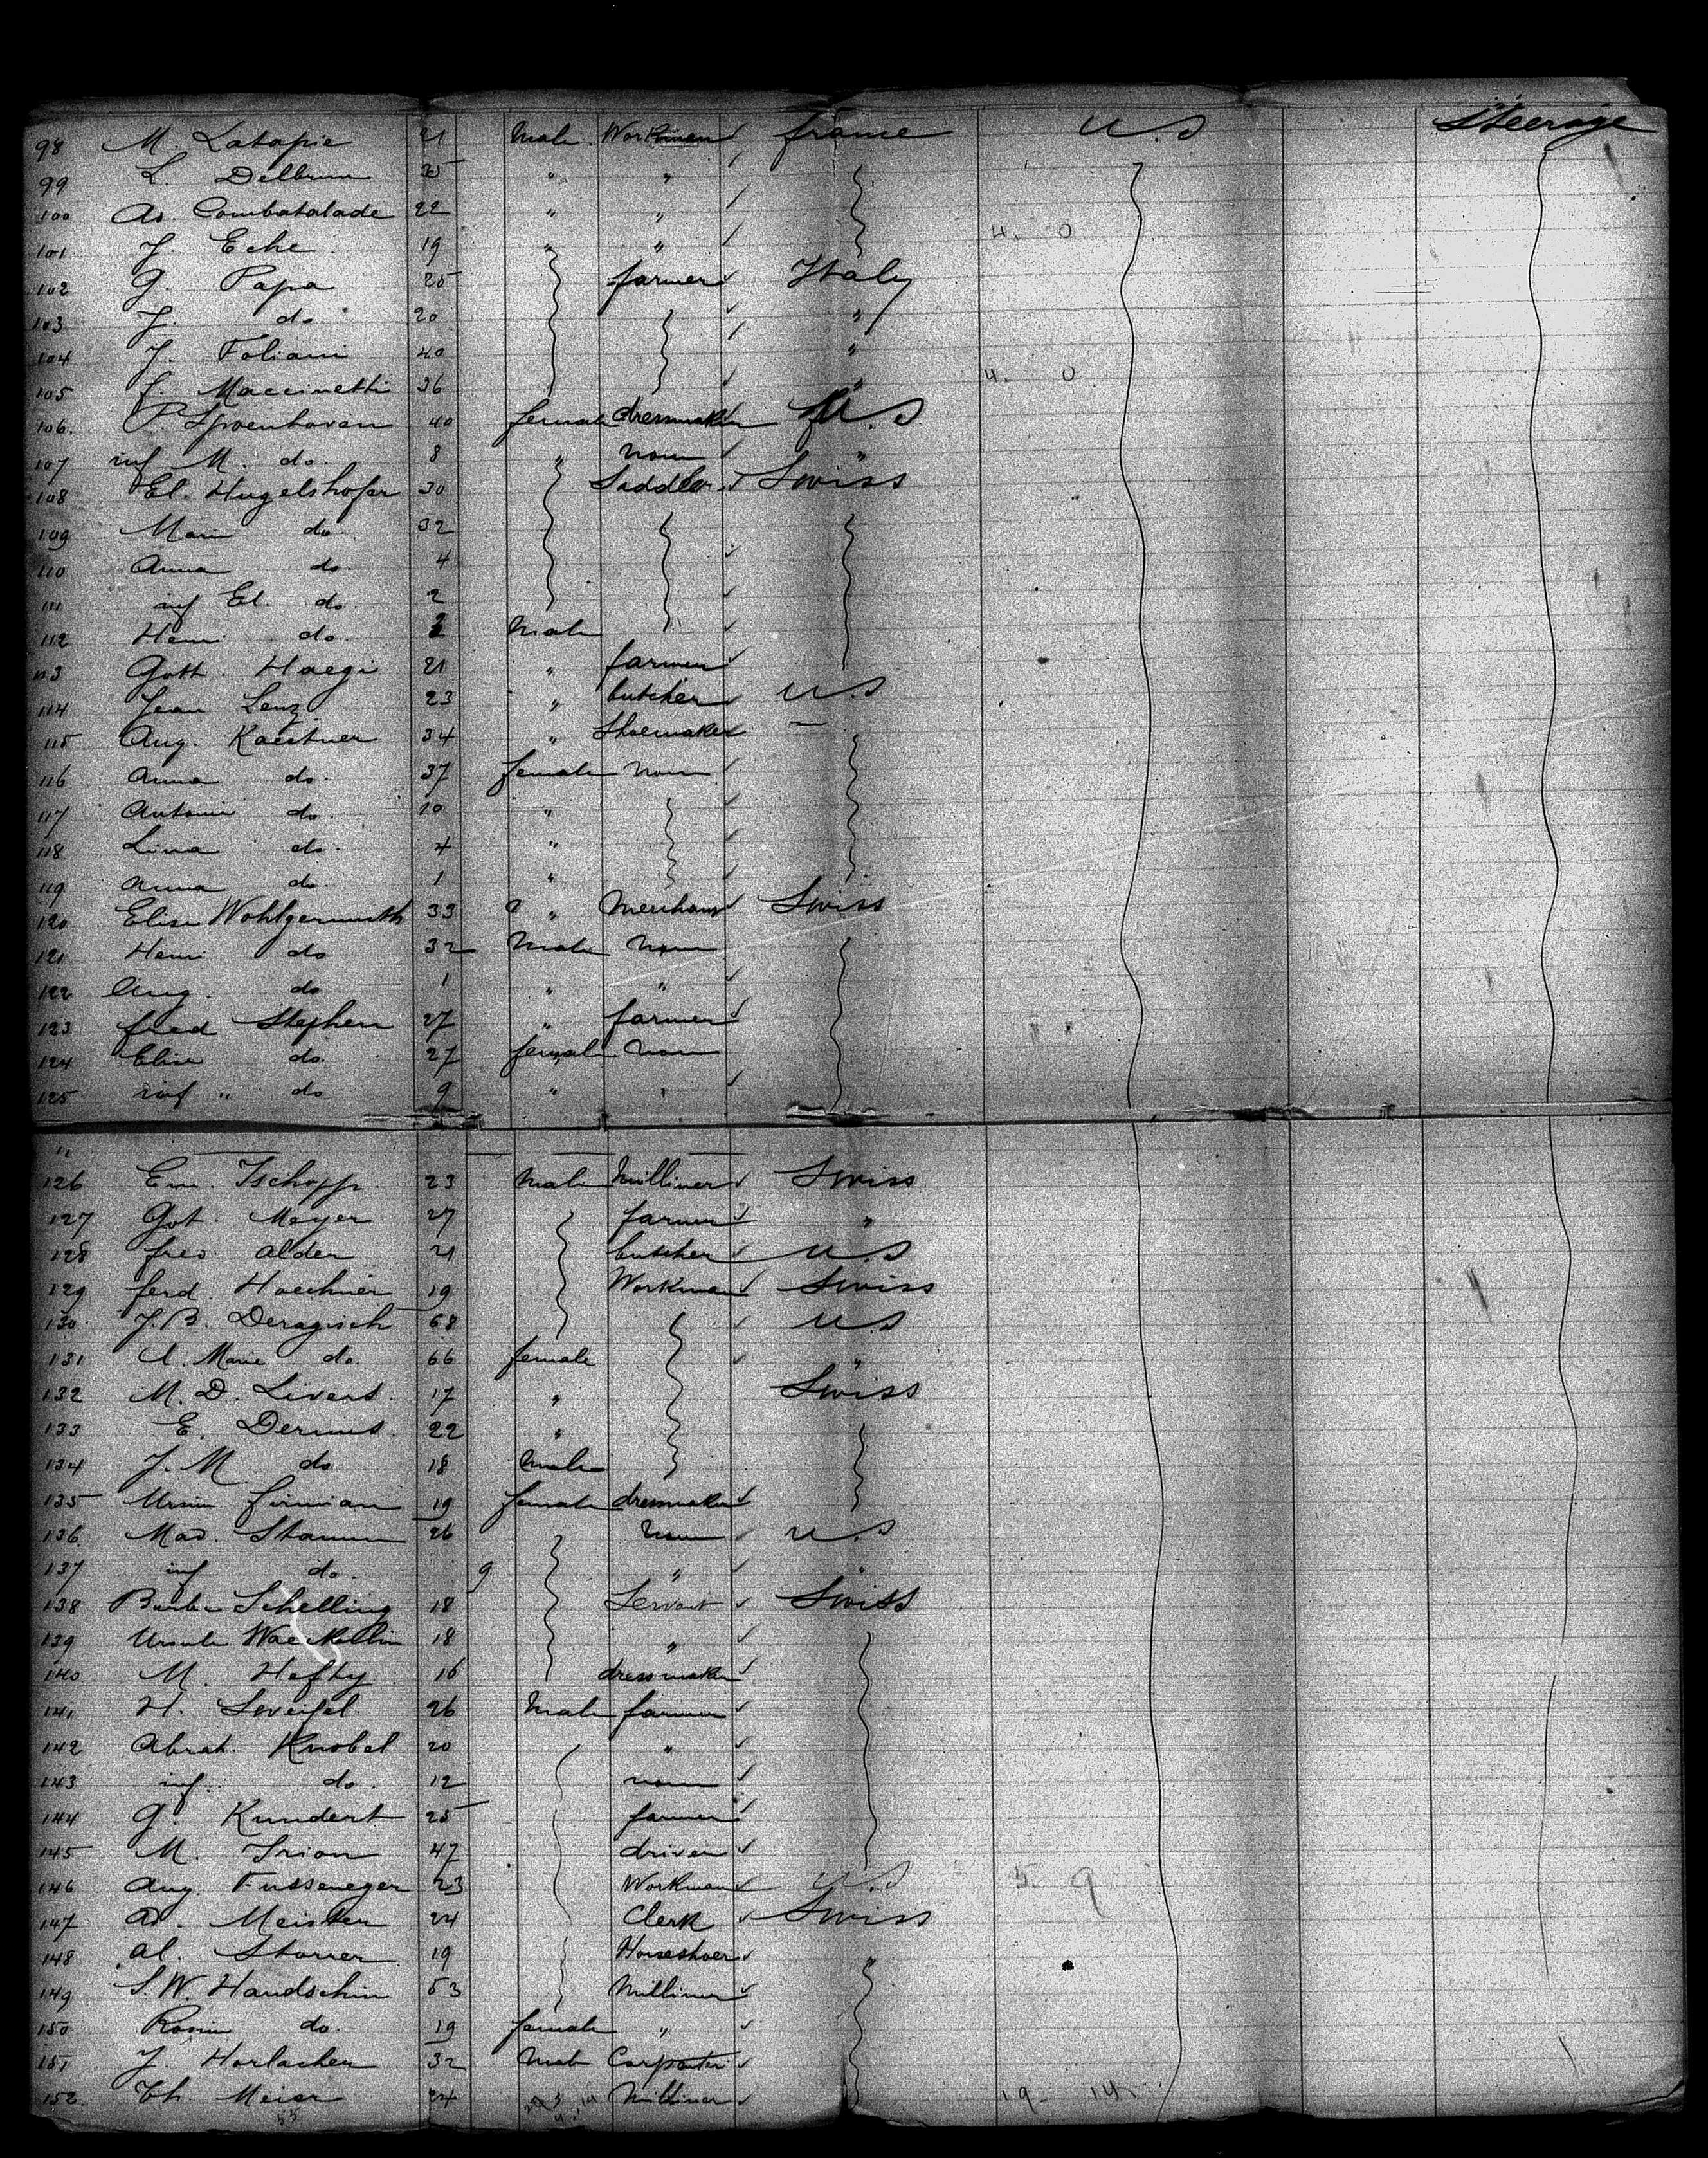 98 M. Latapie 21 Male Workman ✓ france U.S Steerage
99 L. Delbrun 35 " "
100 Ad. Combatalade 22 " "
101 J. Eche 19 " " 4. 0
102 G. Papa 25 farmer ✓ Italy
103 J. do. 20 "
104 J. Foliani 40 "
105 f. Maccinetti 36 " 4. 0
106. P. Spoenhoven 40 female dressmaker U.S
107 inf M. do. 8 " none ✓ "
108 El. Hugelshofer 30 Saddler ✓ Swiss
109 Marie do. 32
110 Anna do. 4
111 inf El. do. 2
112 Henri do. Male
113 Gott. Haegi 21 " farmer
114 Jean Lenz 23 " butcher ✓ U.S
115 Aug. Kaestner 34 " Shoemaker
116 Anna do. 37 female none
117 Antonie do. 10 "
118 Lina do. 4 "
119 Anna do. 1 "
120 Elise Wohlgemuth 33 " Merchant Swiss
121 Henri do 32 Male none
122 Aug. do 1 " "
123 fred Stephen 27 " farmer
124 Elise do. 27 female none
125 inf " do 9 "
126 Em. Tschopp. 23 Male Milliner ✓ Swiss
127 Got. Meyer 27 farmer "
128 fred Alder 21 butcher ✓ U.S
129 ferd. Hoechner 19 Workman ✓ Swiss
130. J.B. Deragisch 68 U.S
131 A. Marie do. 66 female "
132 M. D. Livers. 17 " Swiss
133 E. Derins. 22 "
134 J. M do 18 Male
135 Ursin firmian 19 female dressmaker
136. Mad. Stamm 26 none ✓ U.S
137 inf do. 9 " "
138 Schelling 18 Servant ✓ Swiss
139 Ursula Waeckollin 18 "
140 M. Hefty 16 dressmaker
141 H. Sweifel 26 Male farmer
142 Abrah. Knobel 20 "
143 inf. do. 12 none
144 G. Kundert 25 farmer
145 M. Trion 47 driver
146 Aug. Fusseneger 23 Workman ✓ U.S 5. 9
147 Ad. Meister 24 Clerk ✓ Swiss
148 al. Storrer 19 Horseshoer "
149 S.W. Handschin 53 Milliner
150 Rosine do. 19 female "
151 J. Horlacher 32 Male Carpenter
152. Th. Meier 24 Milliner 19 14